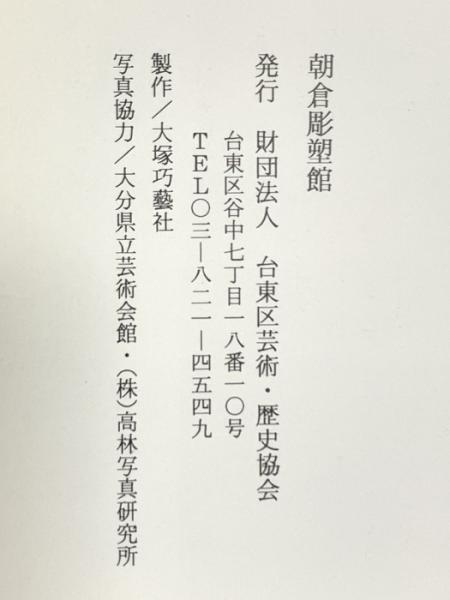 朝倉彫塑館
発行　財団法人　台東区芸術・歴史協会
台東区谷中七丁目一八番一〇号
TEL〇三―八二一―四五四九
製作／大塚巧藝社
写真協力／大分県立芸術会館・（株）高林写真研究所